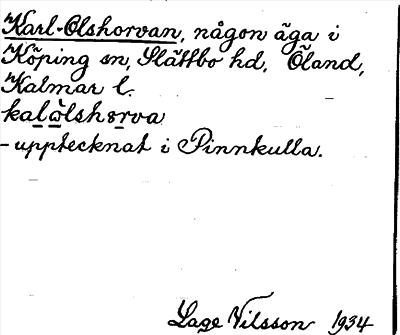 Karl-Olshorvan, någon äga i
Köping sn, Slättbo hd, Öland,
Kalmar l.
kalòlshɷrva
- upptecknat i Pinnkulla.
Lage Nilsson 1934